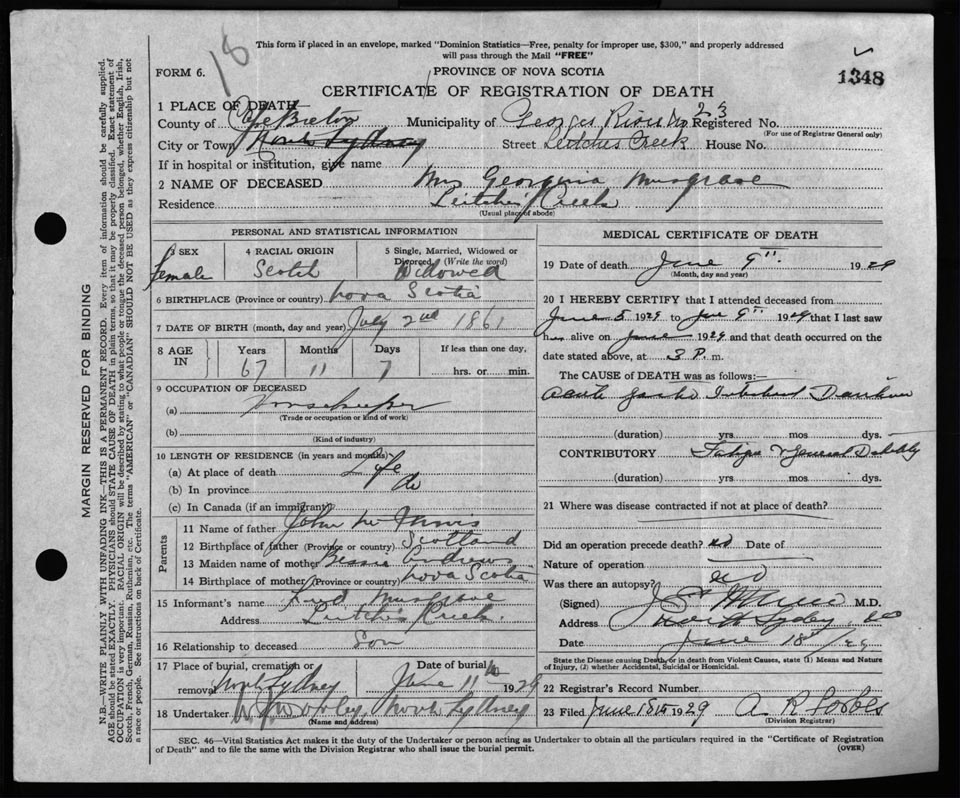 18
This form if placed in an envelope, marked "Dominion Statistics—Free, penalty for improper use, $300," and properly addressed
will pass through the Mail "FREE"
FORM 6.
PROVINCE OF NOVA SCOTIA
1348
CERTIFICATE OF REGISTRATION OF DEATH
1 PLACE OF DEATH—
County of Cape Breton Municipality of Georges River No 23 Registered No.
(For use of Registrar General only)
City or Town North Sydney Street Leitches Creek House No.
If in hospital or institution, give name
2 NAME OF DECEASED Mrs Georgina Musgrave
Residence Leitches Creek
(Usual place of abode)
PERSONAL AND STATISTICAL INFORMATION
3 SEX
female
4 RACIAL ORIGIN
Scotch
5 Single, Married, Widowed or
Divorced (Write the word)
Widowed
6 BIRTHPLACE (Province or country) Nova Scotia
7 DATE OF BIRTH (month, day and year) July 2nd 1861
8 AGE
IN
Years
67
Months
11
Days
7
If less than one day,
hrs. or min.
9 OCCUPATION OF DECEASED
(a) Housekeeper
(Trade or occupation or kind of work)
(b)
(Kind of industry)
10 LENGTH OF RESIDENCE (in years and months)
(a) At place of death Life
(b) In province do
(c) In Canada (if an immigrant)
Parents
11 Name of father John
12 Birthplace of father (Province or country) Scotland
13 Maiden name of mother Bessie Andrews
14 Birthplace of mother (Province or country) Nova Scotia
15 Informant's name Musgrave
Address Leitches Creek.
16 Relationship to deceased Son
17 Place of burial, cremation or
removal North Sydney
Date of burial
June 11th 1929
18 Undertaker North Sydney
(Name and address)
MEDICAL CERTIFICATE OF DEATH
19 Date of death June 9th 1929
(Month, day and year)
20 I HEREBY CERTIFY that I attended deceased from
June 5 1929 to June 9th 1929 that I last saw
her alive on June 1929 and that death occurred on the
date stated above, at 3 P. m.
The CAUSE of DEATH was as follows:
Acute Gastro Intestinal
(duration) yrs mos dys.
CONTRIBUTORY Fatigue & General Debility
(duration) yrs. mos. dys.
21 Where was disease contracted if not at place of death?
Did an operation precede death? no Date of
Nature of operation
Was there an autopsy? no
(Signed) M.D.
Address North Sydney
Date June 18th/29
State the Disease causing Death, or in death from Violent Causes, state (1) Means and Nature
of Injury, (2) whether Accidental, Suicidal or Homicidal.
22 Registrar's Record Number
23 Filed June 18th 1929 A R Forbes
(Division Registrar)
SEC. 46—Vital Statistics Act makes it the duty of the Undertaker or person acting as Undertaker to obtain all the particulars required in the "Certificate of Registration
of Death" and to file the same with the Division Registrar who shall issue the burial permit.
(OVER)
MARGIN RESERVED FOR BINDING
N.B.—WRITE PLAINLY WITH UNFADING INK—THIS IS A PERMANENT RECORD. Every item of information should be carefully supplied.
AGE should be stated EXACTLY. PHYSICIANS should STATE CAUSE OF DEATH in plain terms, so that it may be properly classified. Exact statement of
OCCUPATION is very important. RACIAL ORIGIN will be described by stating to what people or tongue the deceased person belonged, whether English, Irish,
Scotch, French, German, Russian, Ruthenian, etc. The terms "AMERICAN" or "CANADIAN" SHOULD NOT BE USED as they express citizenship but not
a race or people. See instructions on back of Certificate.